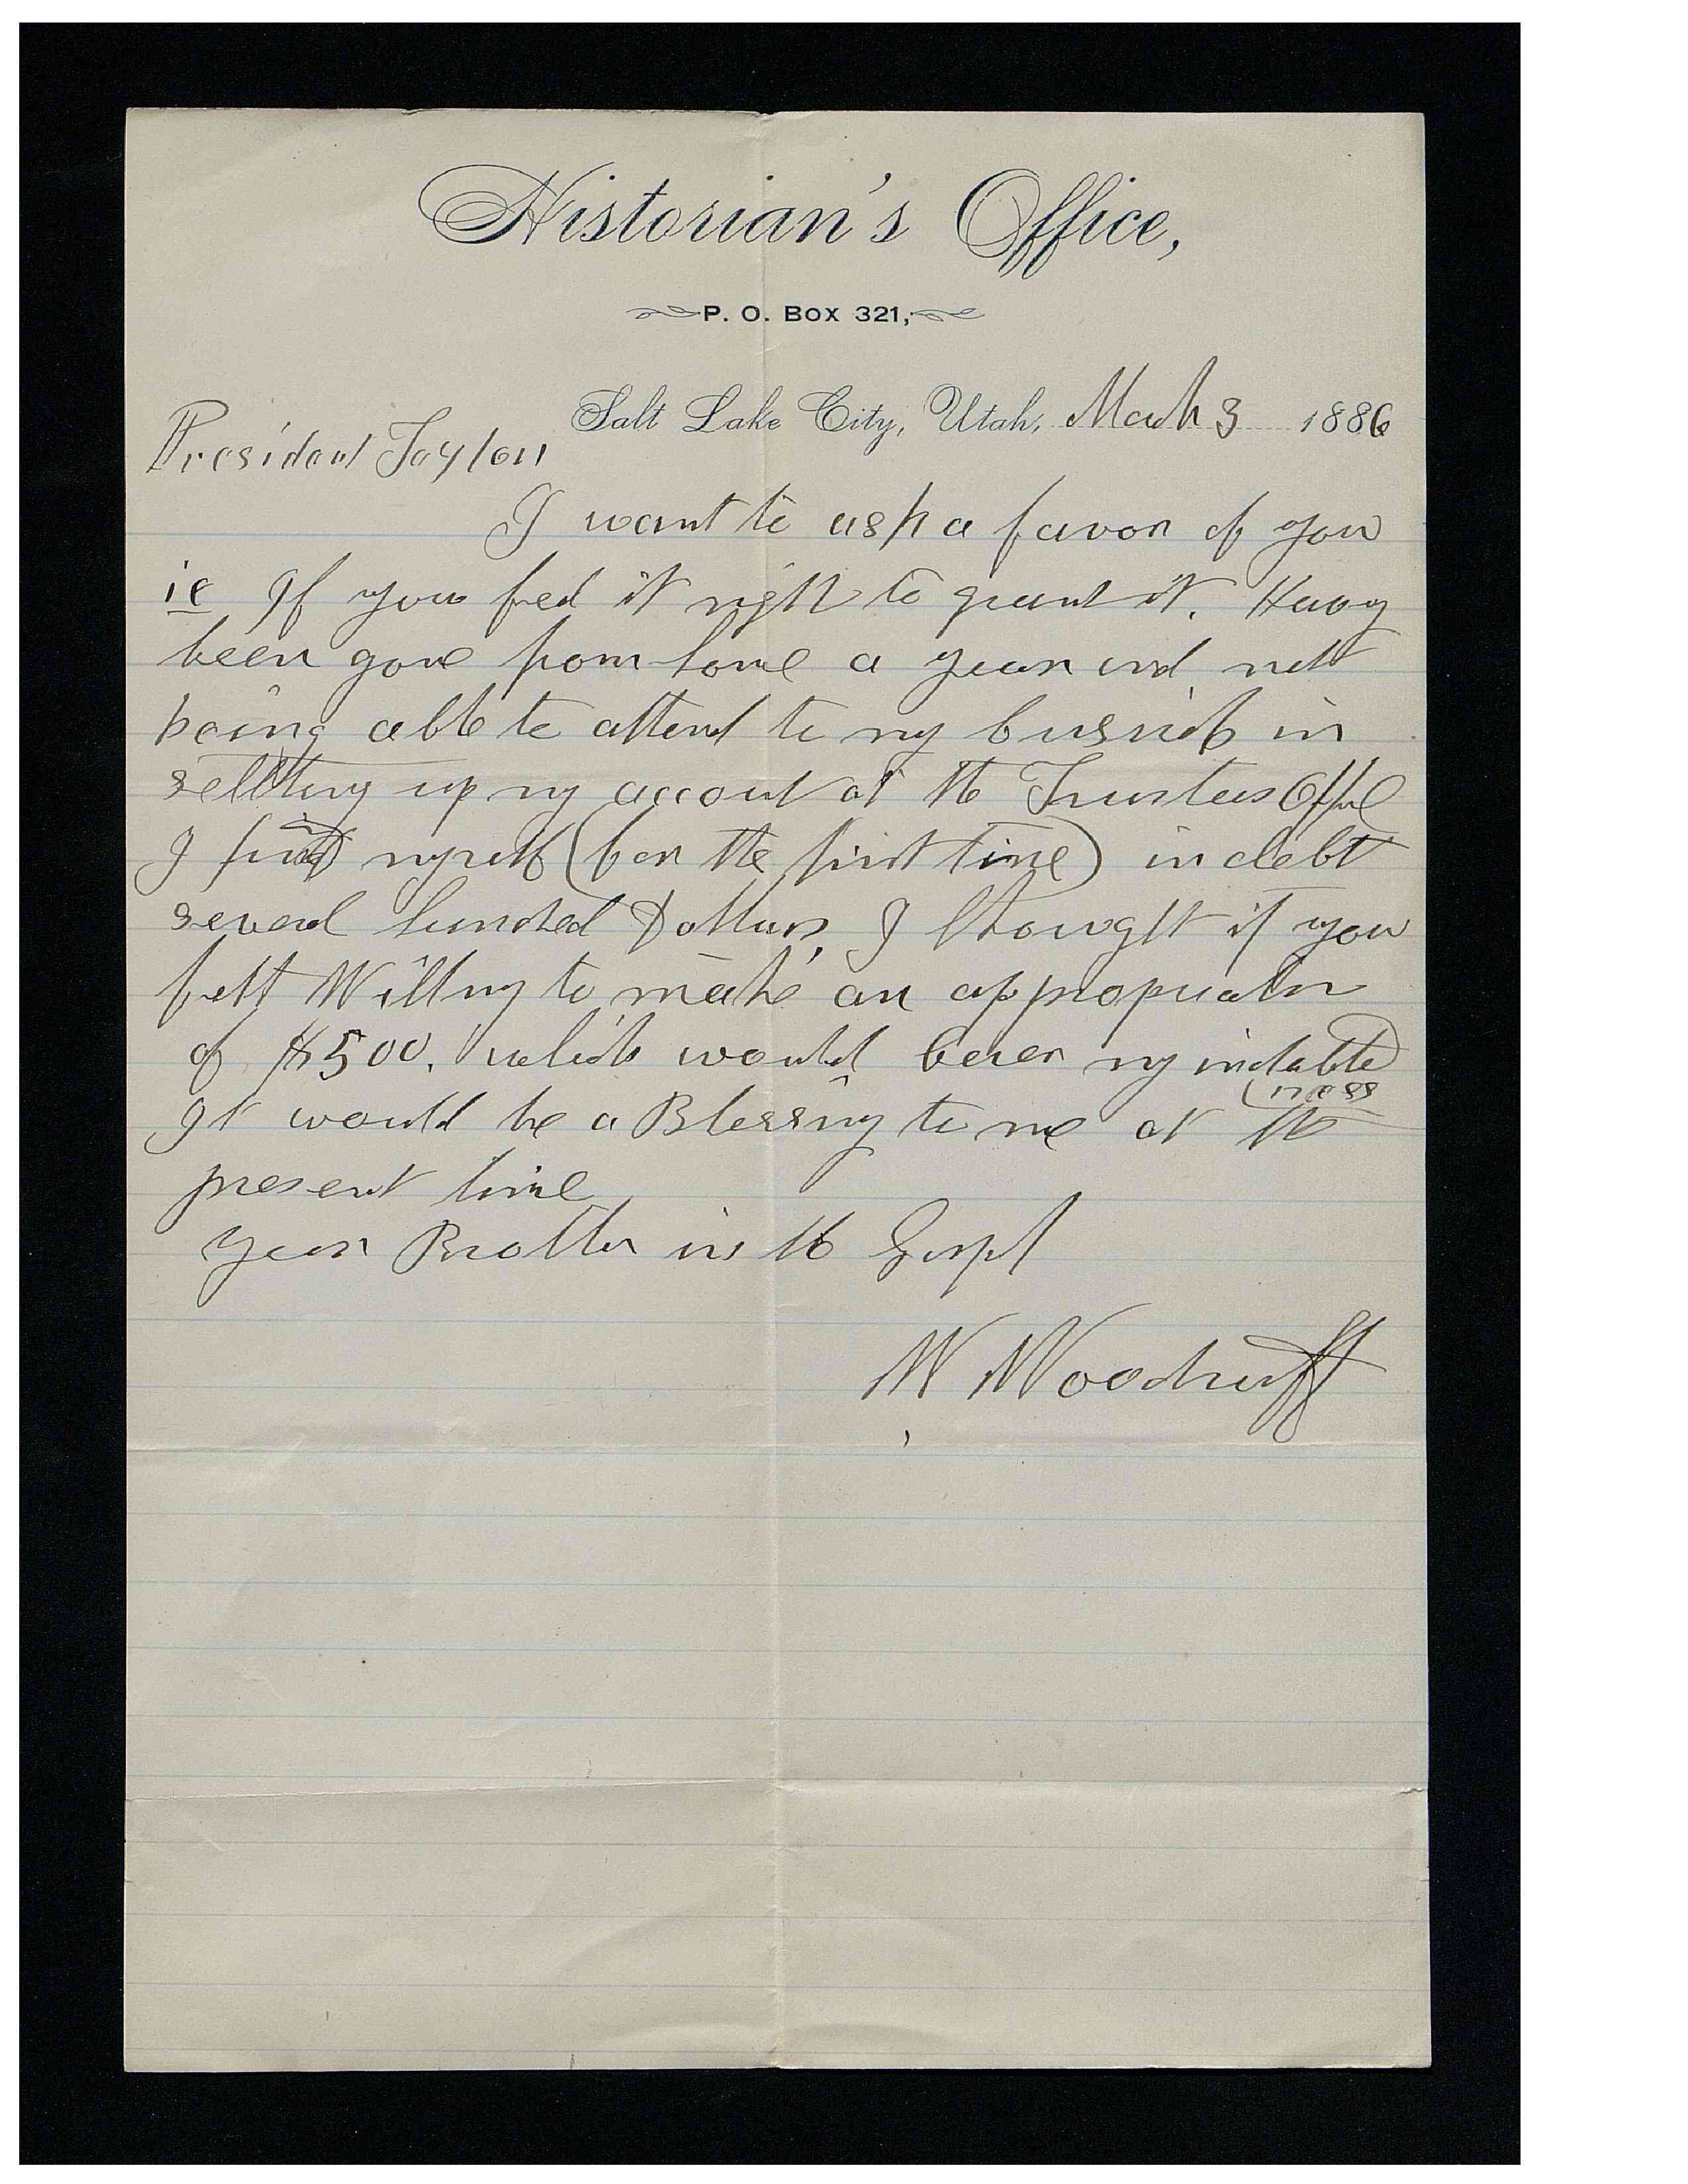 Historian's Office,
P. O. Box 321,
Salt Lake City, Utah, March 3 1886
President Taylor
I want to ask a favor of you
ie If you feel it right to grant it. Having
been gone from home a year and not
being able to attend to my business in
settling up my account at the Trustees Office
I find myself (for the first time) in debt
several hundred Dollars, I thought if you
felt Willing to make an appropriation
of $500. which would cover my indebted
ness
It would be a Blessing to me at the
present time
Your Brother in the Gospel
W Woodruff